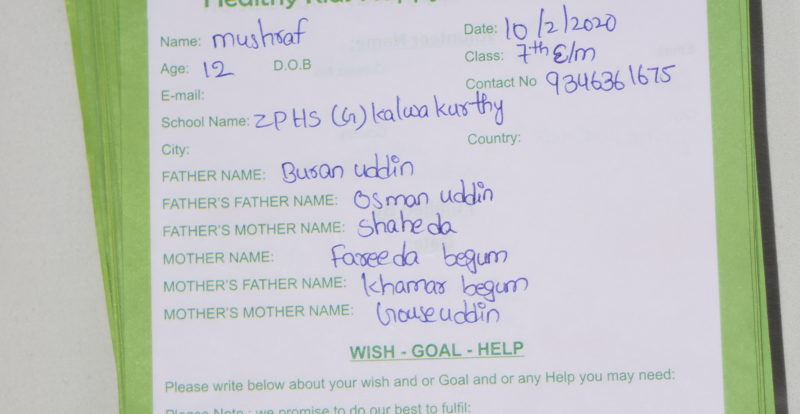 Name: mushraf Date: 10/2/2020
Age: 12 D.O.B Class: 7th E/m
E-mail: Contact No 9346361675
School Name: ZPHS (G) kalwakurthy
City: Country:
FATHER NAME: Buran uddin
FATHER'S FATHER NAME: Osman uddin
FATHER'S MOTHER NAME: Shaheda
MOTHER NAME: Fareeda begum
MOTHER'S FATHER NAME: Khamar begum
MOTHER'S MOTHER NAME: Gouseuddin
WISH - GOAL - HELP
Please write below about your wish and or Goal and or any Help you may need:
Please Note : we promise to do our best to fulfil: